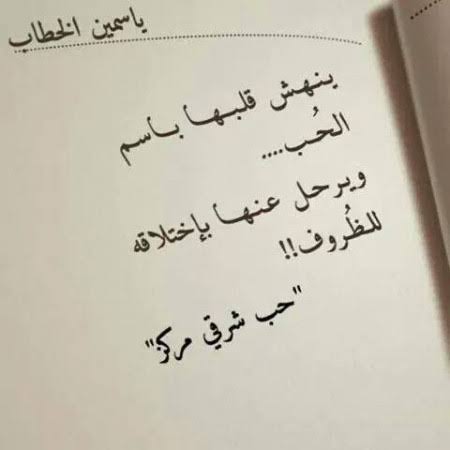 ياسمين الخطاب
ينهش قلبها باسم
الحُب....
ويرحل عنها بإختلاقه
للظُروف!!
"حب شرقي مركز"